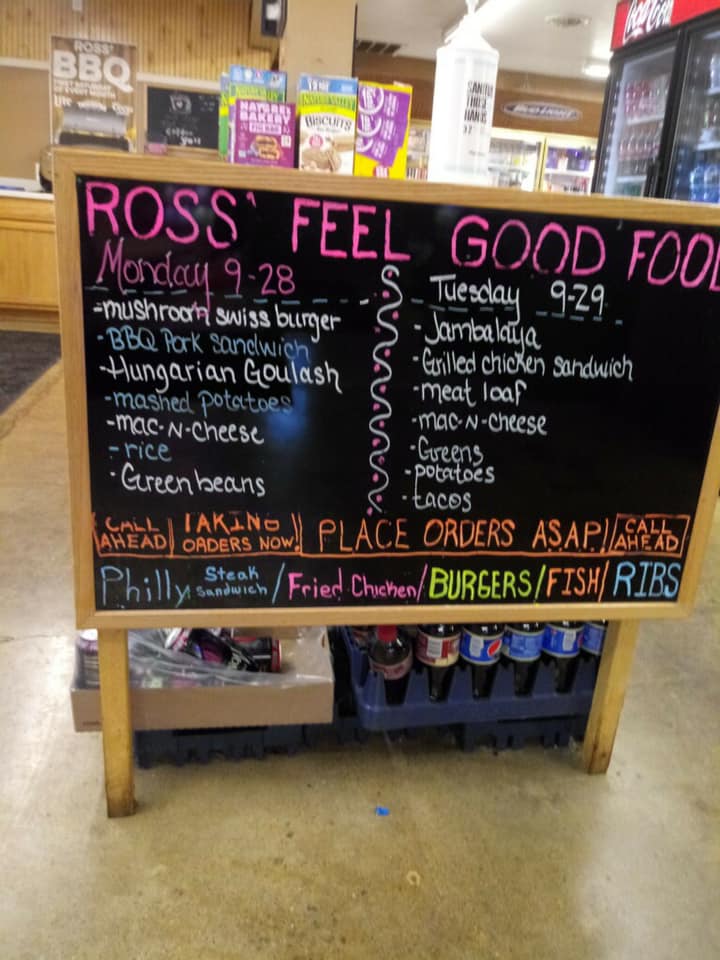 ROSS'
BBQ
Coca-Cola
SANITIZE
THOSE
HANDS
NATURE VALLEY
BISCUITS
NATURE'S
BAKERY
FIG BAR
BUD LIGHT
ROSS' FEEL GOOD FOOD
Monday 9-28
-mushroom swiss burger
-BBQ Pork sandwich
-Hungarian Goulash
-mashed potatoes
-mac-N-cheese
-rice
-Green beans
Tuesday 9-29
-Jambalaya
-Grilled chicken sandwich
-meat loaf
-mac-N-cheese
-Greens
-potatoes
-tacos
CALL
AHEAD
TAKING
ORDERS NOW!
PLACE ORDERS A.S.A.P!
CALL
AHEAD
Philly Steak Sandwich / Fried Chicken / BURGERS / FISH / RIBS